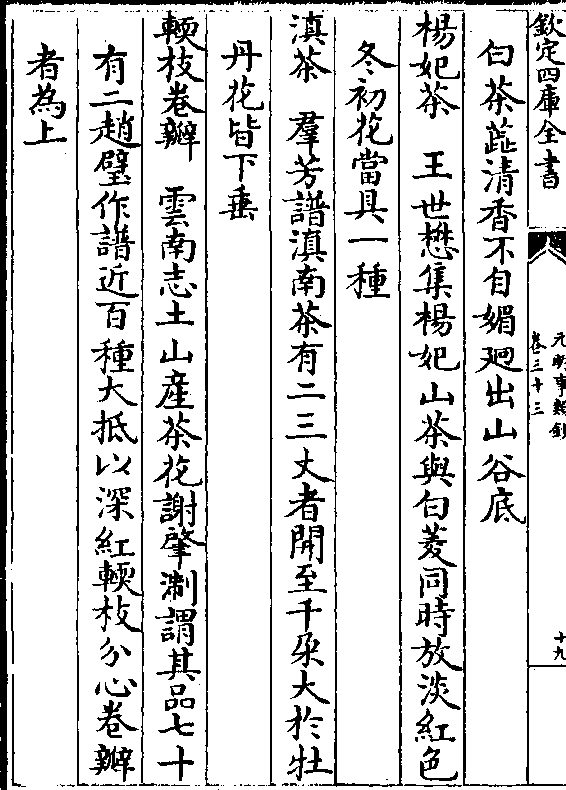 欽定四庫全書
元明事類鈔
卷三十三
十九
白茶蕋清香不自媚迥出山谷底
楊妃茶　王世懋集楊妃山茶與白菱同時放淡紅色
冬初花當具一種
滇茶　羣芳譜滇南茶有二三丈者開至千朶大於牡
丹花皆下垂
輭枝卷瓣　雲南志土山産茶花謝肇淛謂其品七十
有二趙璧作譜近百種大抵以深紅輭枝分心卷瓣
者為上